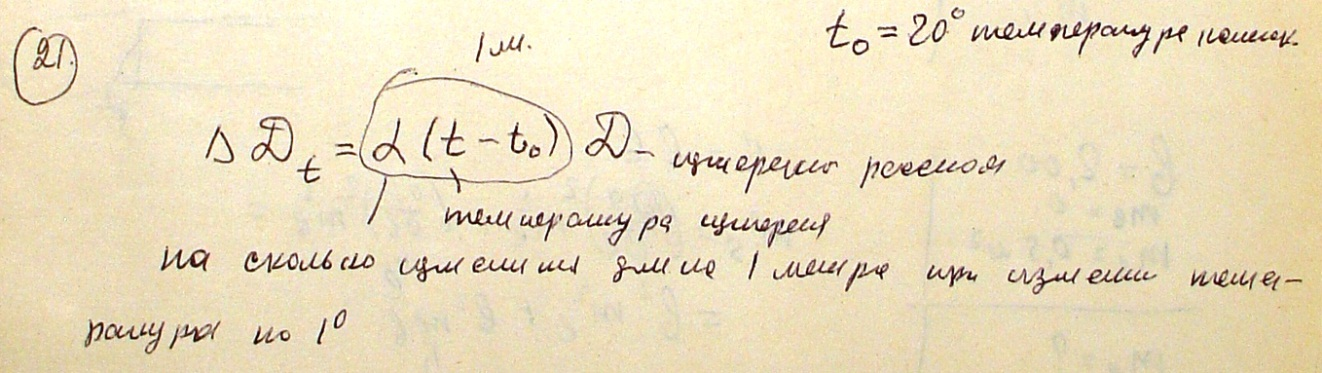 t₀ = 20° температура компар.
21.
1 м.
Δ D_t = α (t - t₀) D - измерено рассеян
температура измерения
на сколько изменится длина 1 метра при измении темпе-
ратура на 1°